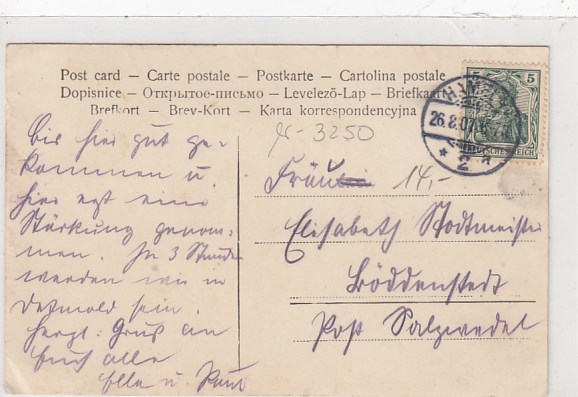 Post card – Carte postale – Postkarte – Cartolina postale
Dopisnice – Открытое-письмо – Levelező-Lap – Briefkaart
Brefkort – Brev-Kort – Karta korrespondencyjna
Bis hier gut ge-
kommen u.
hier erst eine
Stärkung genom-
men. In 3 Stunden
werden wir in
Detmold sein.
Herzl. Gruß an
Euch alle
Ella u. Paul
3250
Fräulein 14,-
Elisabeth Stodtmeister
Böddenstedt
Post Salzwedel
5
26.8.07
DEUTSCHES REICH
* 2